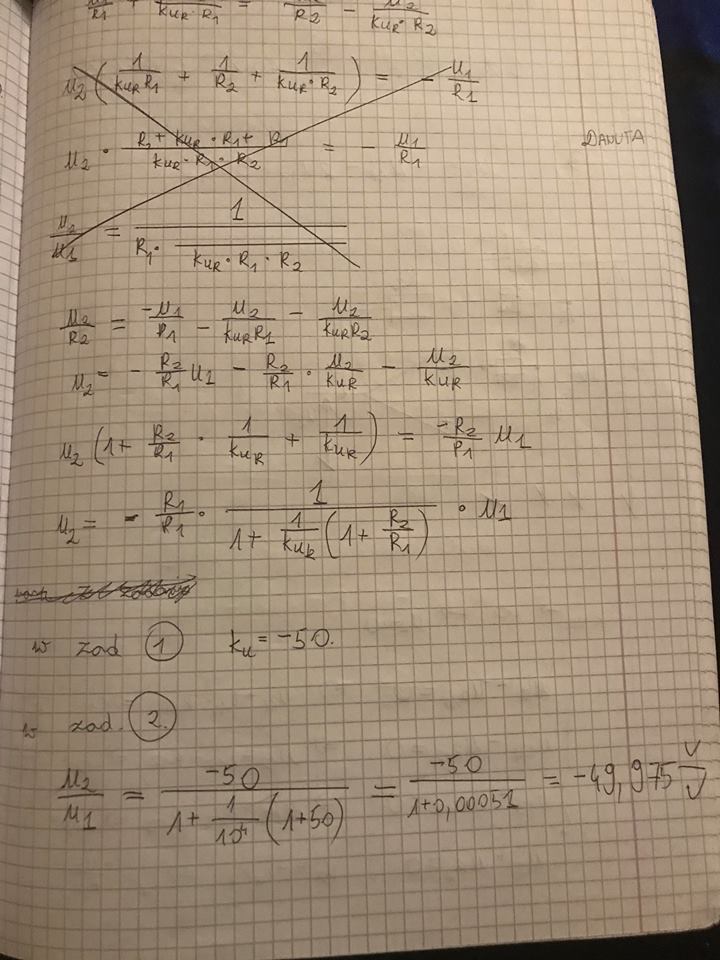 u₁/R₁ + /(kuR · R₁) = /R₂ - u₂/(kuR · R₂)
u₂ ( 1/(kuR R₁) + 1/R₂ + 1/(kuR · R₂) ) = - u₁/R₁
u₂ · (R₂ + kuR · R₁ + R₁)/(kuR · R₁ · R₂) = - u₁/R₁
DANUTA
u₂/u₁ = 1/(R₁ · /(kuR · R₁ · R₂))
u₂/R₂ = -u₁/R₁ - u₂/(kuR R₁) - u₂/(kuR R₂)
u₂ = - R₂/R₁ u₁ - R₂/R₁ · u₂/kuR - u₂/kuR
u₂ ( 1 + R₂/R₁ · 1/kuR + 1/kuR ) = -R₂/R₁ u₁
u₂ = - R₁/R₁ · 1/(1 + 1/kuR (1 + R₂/R₁)) · u₁
w zad 1 ku = -50.
w zad. 2.
u₂/u₁ = -50/(1 + 1/10⁴ (1+50)) = -50/(1+0,00051) = -49,975 V/V